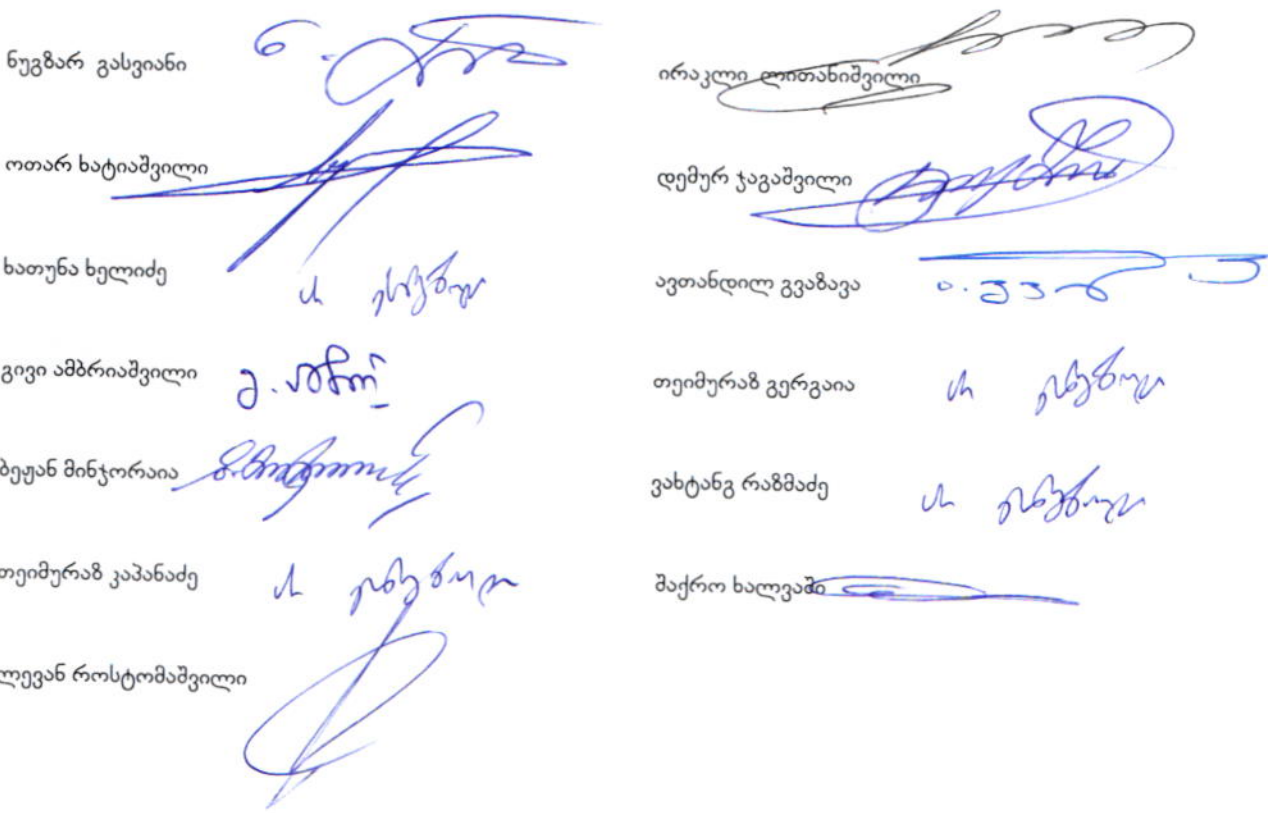 ნუგზარ გასვიანი
ოთარ ხატიაშვილი
ხათუნა ხელიძე
არ ესწრებოდა
გივი ამბრიაშვილი
ბეჟან მინჯორაია
თეიმურაზ კაპანაძე
არ ესწრებოდა
ლევან როსტომაშვილი
ირაკლი ლითანიშვილი
დემურ ჯაგაშვილი
ავთანდილ გვაზავა
თეიმურაზ გერგაია
არ ესწრებოდა
ვახტანგ რაზმაძე
არ ესწრებოდა
შაქრო ხალვაში